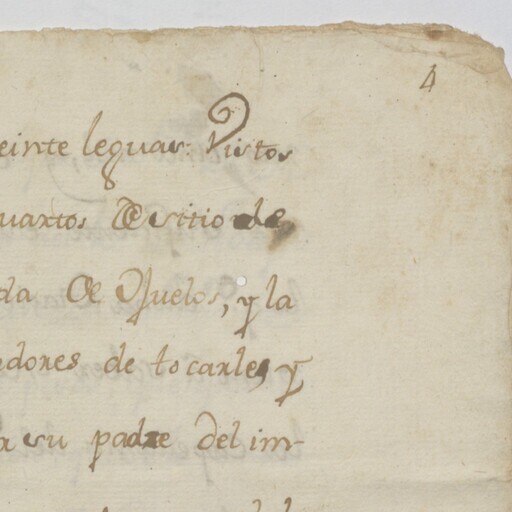 4
einte leguas. Vistos
uartos De sitio de
da De Ojuelos, y la
edores de tocarles, y
a su padre del im-